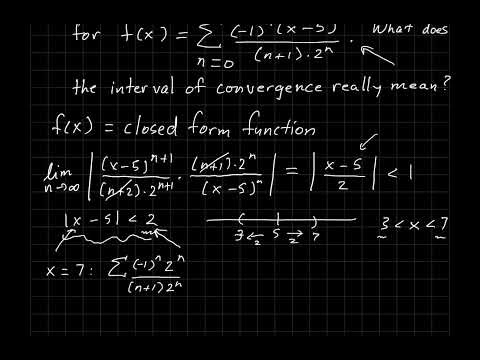 for f(x) = ∑_{n=0} (-1)^n (x-5)^n / (n+1)·2^n . What does
the interval of convergence really mean?
f(x) = closed form function
lim_{n→∞} | (x-5)^{n+1} / (n+2)·2^{n+1} · (n+1)·2^n / (x-5)^n | = | x-5 / 2 | < 1
|x-5| < 2
3 ← 2 5 → 2 7
3 < x < 7
x = 7: ∑ (-1)^n 2^n / (n+1) 2^n